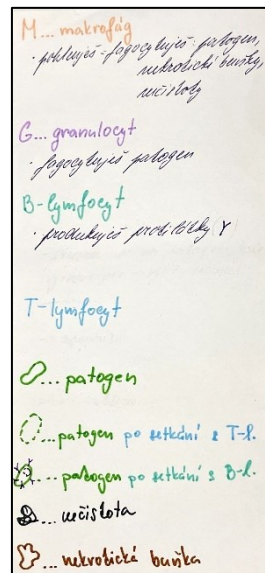 M... makrofág
· pohlcuješ - fagocytuješ: patogen,
nekrotické buňky,
nečistoty
G... granulocyt
· fagocytuješ patogen
B-lymfocyt
· produkuješ protilátky Y
T-lymfocyt
... patogen
... patogen po setkání s T-l.
... patogen po setkání s B-l.
... nečistota
... nekrotická buňka